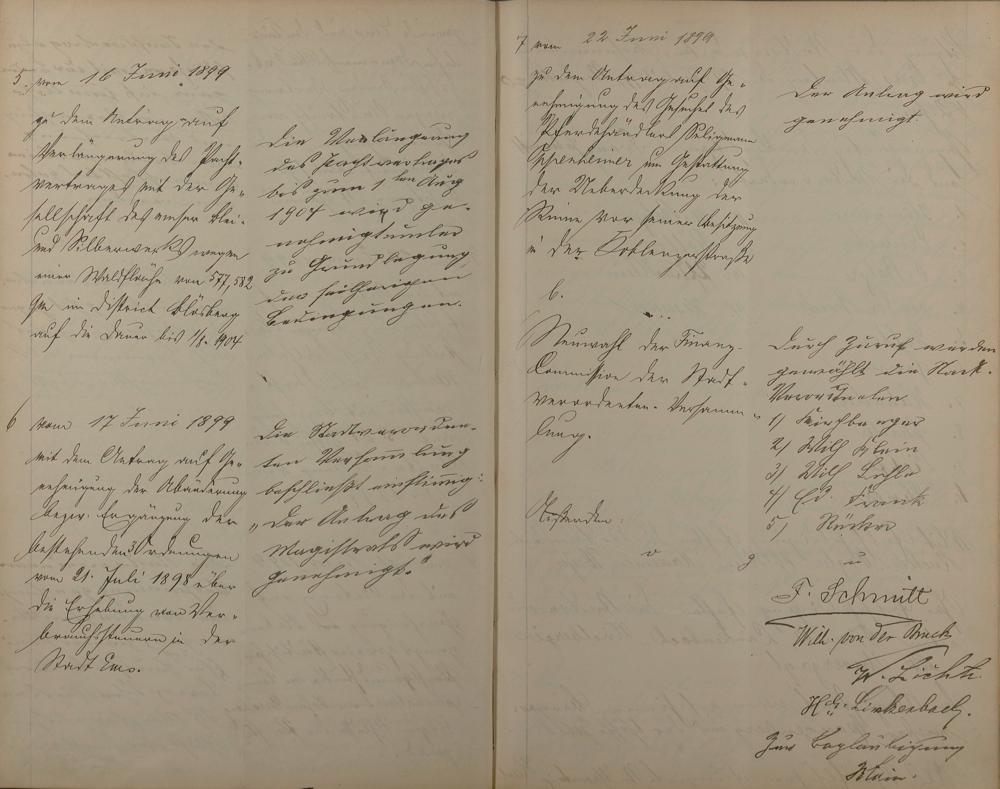 5. vom 16 Juni 1899
zu dem Antrag auf
Verlängerung des Pacht-
vertrages mit der Ge-
sellschaft des emser Blei-
und Silberwerks wegen
einer Waldfläche von 577,582
qm im District Klösberg
auf die Dauer bis 1/8. 1904
Die Verlängerung
des Pachtvertrages
bis zum 1ten Aug
1904 wird ge-
nehmigt unter
zu Grundlegung
der seitherigen
Bedingungen.
6 vom 17 Juni 1899
mit dem Antrag auf Ge-
nehmigung der Abänderung
bezw. Ergänzung der
bestehenden Ordnungen
vom 21. Juli 1898 über
die Erhebung von Ver-
brauchssteuern in der
Stadt Ems.
Die Stadtverordne-
ten Versammlung
beschließt einstimmig:
„Der Antrag des
Magistrats wird
genehmigt."
7 vom 22 Juni 1899
zu dem Antrag auf Ge-
nehmigung des Gesuches des
Pferdehändlers Seligmann
Oppenheimer um Gestattung
der Ueberdeckung der
Rinne vor seiner Besitzung
in der Coblenzerstraße
Der Antrag wird
genehmigt.
b.
Neuwahl der Finanz-
Commission der Stadt-
verordneten-Versamm-
lung.
Durch Zuruf wurden
gewählt die Stadt-
Verordneten
1)
2) Wilh Klein
3) Wilh
4) Ed. Frank
5) Rücker
v g u
F. Schmitt
Wilh. von der Bruck
W.
Hch. Linkenbach.
Zur Beglaubigung
Klein.